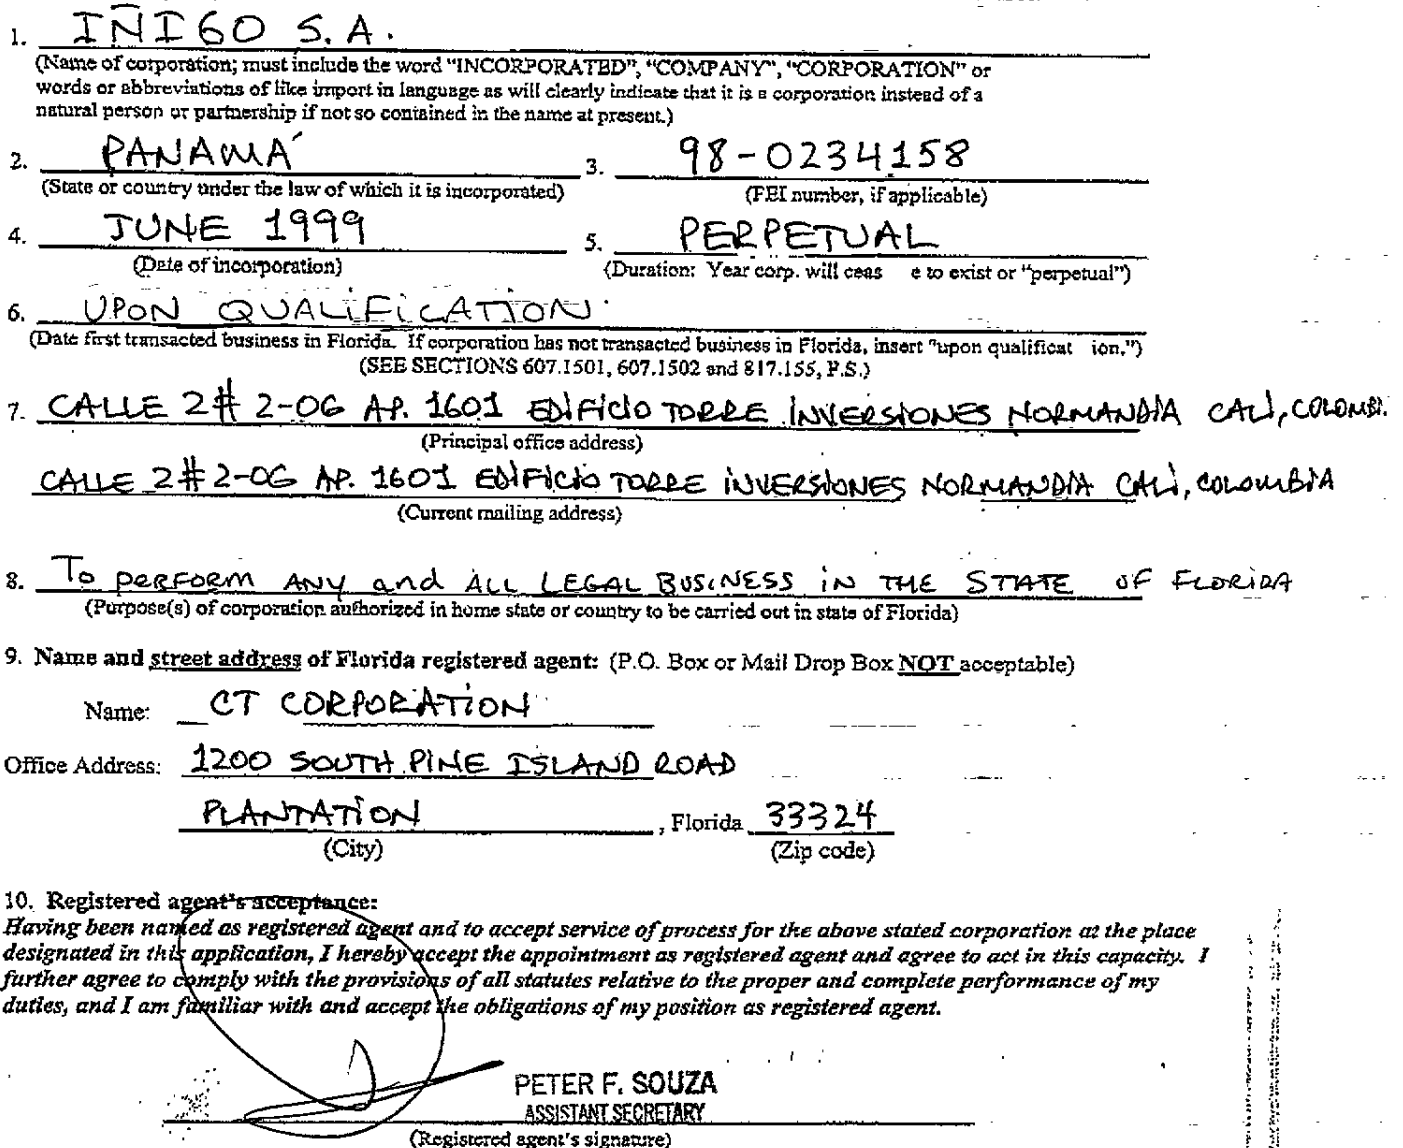 1. IÑIGO S.A.
(Name of corporation; must include the word "INCORPORATED", "COMPANY", "CORPORATION" or
words or abbreviations of like import in language as will clearly indicate that it is a corporation instead of a
natural person or partnership if not so contained in the name at present.)
2. PANAMÁ 3. 98-0234158
(State or country under the law of which it is incorporated) (FEI number, if applicable)
4. JUNE 1999 5. PERPETUAL
(Date of incorporation) (Duration: Year corp. will ceas e to exist or "perpetual")
6. UPON QUALIFICATION
(Date first transacted business in Florida. If corporation has not transacted business in Florida, insert "upon qualificat ion.")
(SEE SECTIONS 607.1501, 607.1502 and 817.155, F.S.)
7. CALLE 2# 2-06 AP. 1601 EDIFICIO TORRE INVERSIONES NORMANDIA CALI, COLOMBI.
(Principal office address)
CALLE 2# 2-06 AP. 1601 EDIFICIO TORRE INVERSIONES NORMANDIA CALI, COLOMBIA
(Current mailing address)
8. To PERFORM ANY and ALL LEGAL BUSINESS IN THE STATE OF FLORIDA
(Purpose(s) of corporation authorized in home state or country to be carried out in state of Florida)
9. Name and street address of Florida registered agent: (P.O. Box or Mail Drop Box NOT acceptable)
Name: CT CORPORATION
Office Address: 1200 SOUTH PINE ISLAND ROAD
PLANTATION , Florida 33324
(City) (Zip code)
10. Registered agent's acceptance:
Having been named as registered agent and to accept service of process for the above stated corporation at the place
designated in this application, I hereby accept the appointment as registered agent and agree to act in this capacity. I
further agree to comply with the provisions of all statutes relative to the proper and complete performance of my
duties, and I am familiar with and accept the obligations of my position as registered agent.
PETER F. SOUZA
ASSISTANT SECRETARY
(Registered agent's signature)